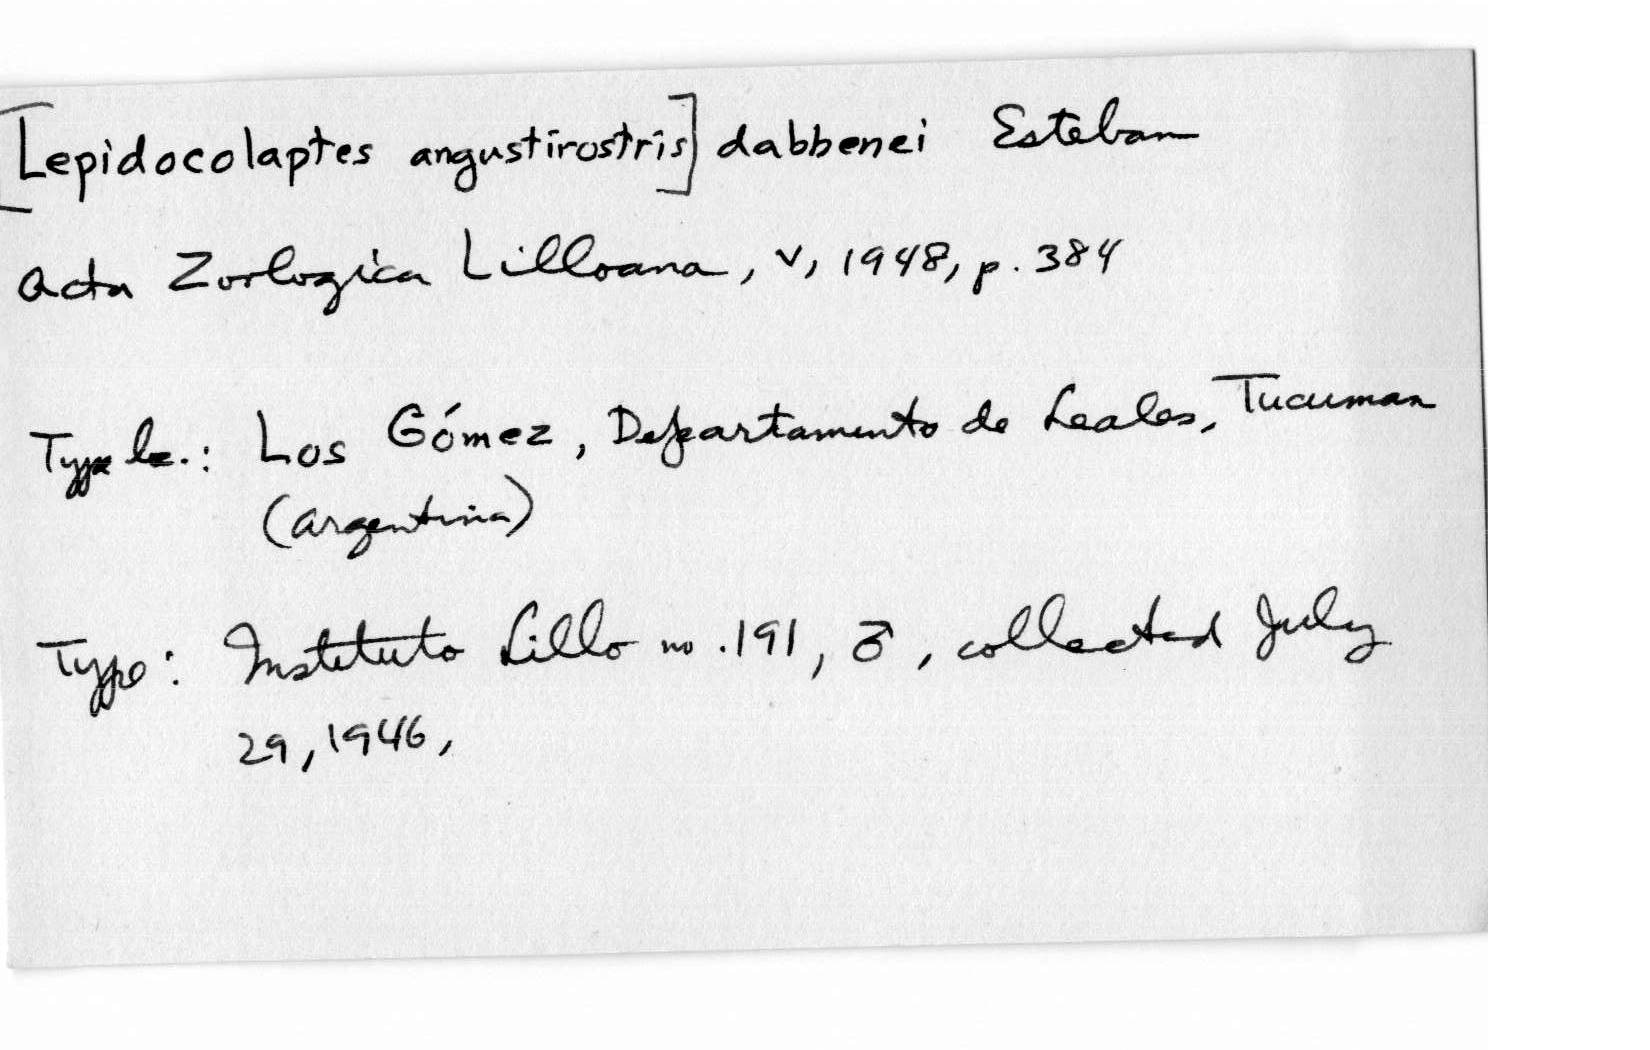 [Lepidocolaptes angustirostris] dabbenei Esteban
Acta Zoologica Lilloana, V, 1948, p. 384
Type loc.: Los Gómez, Departamento de Leales, Tucuman
(Argentina)
Type: Instituto Lillo no. 191, ♂, collected July
29, 1946,